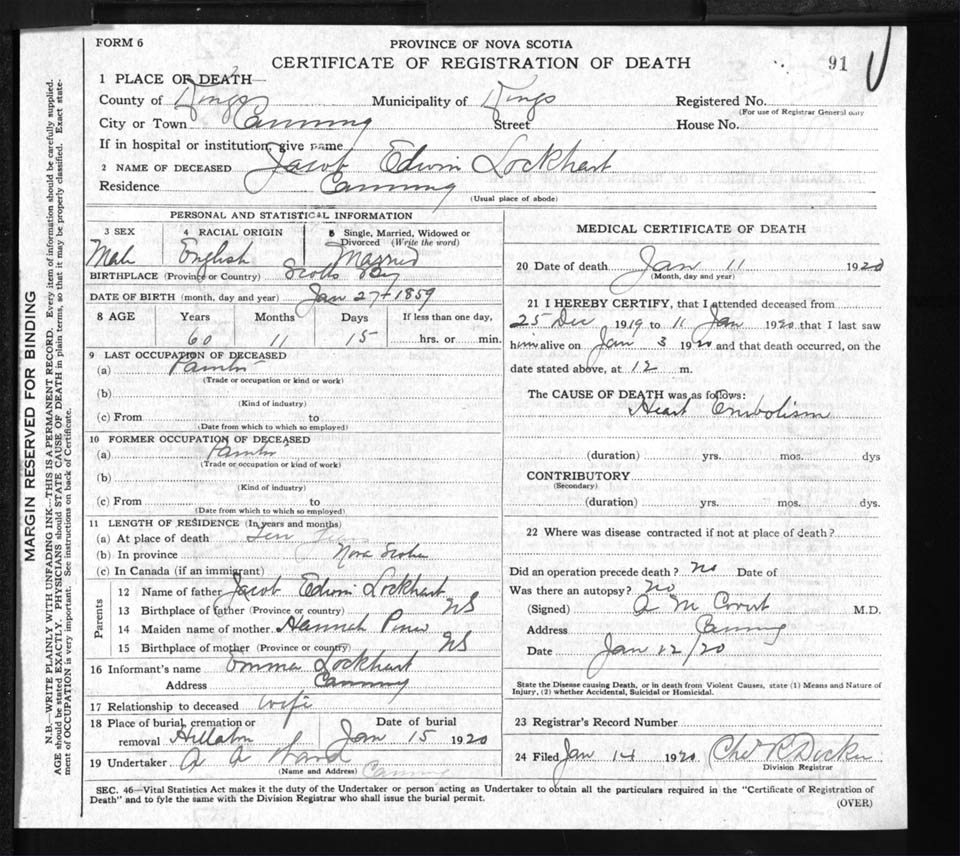 FORM 6
PROVINCE OF NOVA SCOTIA
CERTIFICATE OF REGISTRATION OF DEATH
91
1 PLACE OF DEATH
County of Kings Municipality of Kings Registered No.
(For use of Registrar General only
City or Town Canning Street House No.
If in hospital or institution, give name
2 NAME OF DECEASED Jacob Edwin Lockhart
Residence Canning
(Usual place of abode)
PERSONAL AND STATISTICAL INFORMATION
3 SEX 4 RACIAL ORIGIN 5 Single, Married, Widowed or
Divorced (Write the word)
Male English Married
BIRTHPLACE (Province or Country) Scotts Bay
DATE OF BIRTH (month, day and year) Jan 27 - 1859
8 AGE Years Months Days If less than one day,
60 11 15 hrs. or min.
9 LAST OCCUPATION OF DECEASED
(a) Painter
(Trade or occupation or kind or work)
(b)
(Kind of industry)
(c) From to
(Date from which to which so employed)
10 FORMER OCCUPATION OF DECEASED
(a) Painter
(Trade or occupation or kind of work)
(b)
(Kind of industry)
(c) From to
(Date from which to which so employed)
11 LENGTH OF RESIDENCE (In years and months)
(a) At place of death Ten Years
(b) In province Nova Scotia
(c) In Canada (if an immigrant)
Parents
12 Name of father Jacob Edwin Lockhart
13 Birthplace of father (Province or country) NS
14 Maiden name of mother Hannah
15 Birthplace of mother (Province or country) NS
16 Informant's name Emma Lockhart
Address Canning
17 Relationship to deceased wife
18 Place of burial, cremation or Date of burial
removal Hillaton Jan 15 1920
19 Undertaker A A Ward
(Name and Address) Canning
MEDICAL CERTIFICATE OF DEATH
20 Date of death Jan 11 1920
(Month, day and year)
21 I HEREBY CERTIFY, that I attended deceased from
25 Dec 1919 to 11 Jan 1920 that I last saw
him alive on Jan 3 1920 and that death occurred, on the
date stated above, at 12 m.
The CAUSE OF DEATH was as follows:
Heart Embolism
(duration) yrs. mos. dys
CONTRIBUTORY
(Secondary)
(duration) yrs. mos. dys.
22 Where was disease contracted if not at place of death?
Did an operation precede death? no Date of
Was there an autopsy? no
(Signed) A M M.D.
Address Canning
Date Jan 12/20
State the Disease causing Death, or in death from Violent Causes, state (1) Means and Nature of
Injury, (2) whether Accidental, Suicidal or Homicidal.
23 Registrar's Record Number
24 Filed Jan 14 1920 Chas R Dickie
Division Registrar
SEC. 46—Vital Statistics Act makes it the duty of the Undertaker or person acting as Undertaker to obtain all the particulars required in the "Certificate of Registration of
Death" and to fyle the same with the Division Registrar who shall issue the burial permit.
(OVER)
MARGIN RESERVED FOR BINDING
N.B.—WRITE PLAINLY WITH UNFADING INK—THIS IS A PERMANENT RECORD. Every item of information should be carefully supplied.
AGE should be stated EXACTLY. PHYSICIANS should STATE CAUSE OF DEATH in plain terms, so that it may be properly classified. Exact state-
ment of OCCUPATION is very important. See instructions on back of Certificate.